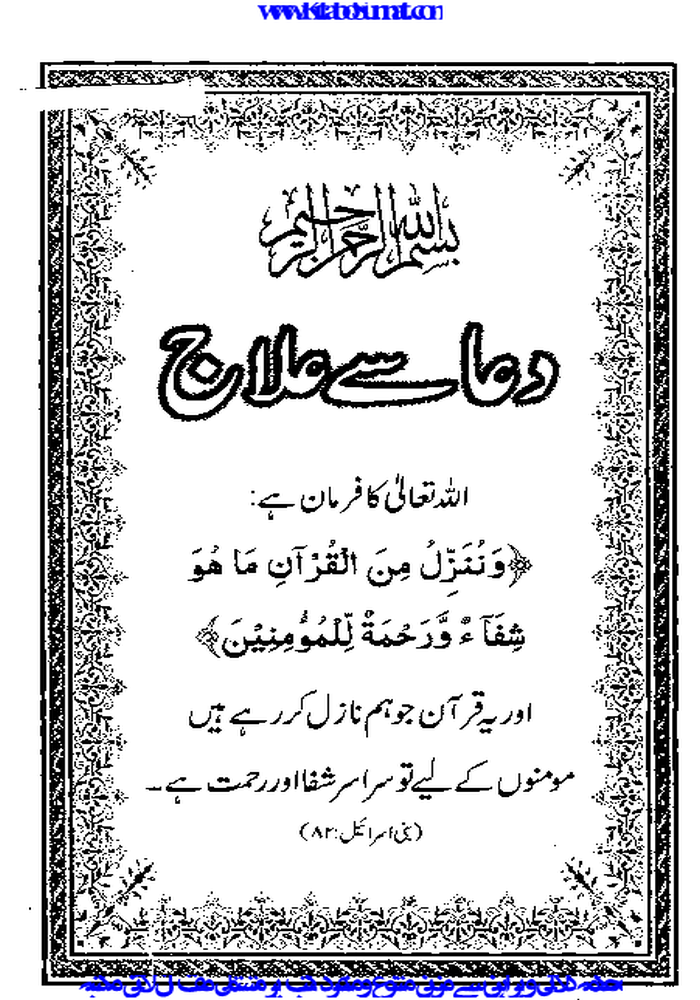 www.KitaboSunnat.com
بسم الله الرحمن الرحيم
دعا سے علاج
اللہ تعالیٰ کا فرمان ہے:
﴿وَنُنَزِّلُ مِنَ الْقُرْآنِ مَا هُوَ
شِفَآءٌ وَّرَحْمَةٌ لِّلْمُؤْمِنِيْنَ﴾
اور یہ قرآن جو ہم نازل کر رہے ہیں
مومنوں کے لیے تو سراسر شفا اور رحمت ہے۔
(بنی اسرائیل:۸۲)